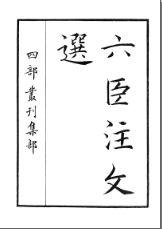 六臣注文
選
四部叢刊集部